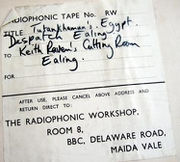 RADIOPHONIC TAPE No. RW
TITLE: Tutankhamun's Egypt.
Despatch Ealing
TO Keith Raven's Cutting Room
Ealing.
FOR
AFTER USE, PLEASE CANCEL ABOVE ADDRESS AND
RETURN DIRECT TO:
THE RADIOPHONIC WORKSHOP,
ROOM 8,
BBC, DELAWARE ROAD,
MAIDA VALE